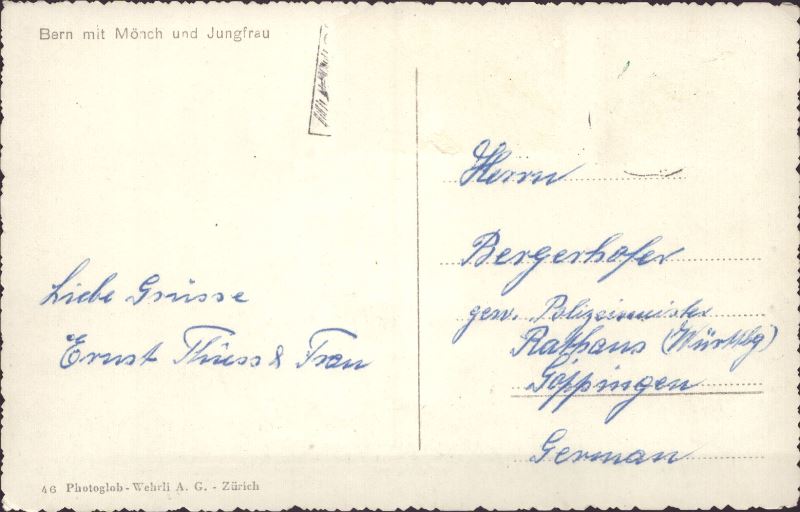 Bern mit Mönch und Jungfrau
Liebe Grüsse
Ernst Thüss & Frau
46 Photoglob-Wehrli A. G. - Zürich
Herrn
Bergerhofer
gew. Polizeimeister
Rathaus (Württbg)
Göppingen
German